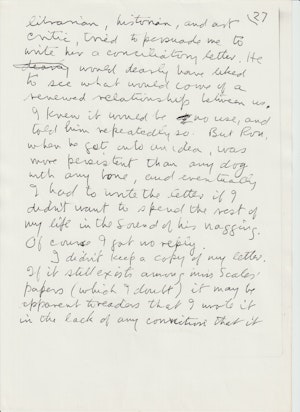 27
librarian, historian, and art
critic, tried to persuade me to
write her a conciliatory letter. He
would dearly have liked
to see what would come of a
renewed relationship between us.
I knew it would be no use, and
told him repeatedly so. But Ron,
when he got onto an idea, was
more persistent than any dog
with any bone, and eventually
I had to write the letter if I
didn't want to spend the rest of
my life in the sound of his nagging.
Of course I got no reply.
I didn't keep a copy of my letter.
If it still exists among Miss Scales'
papers (which I doubt) it may be
apparent to readers that I wrote it
in the lack of any conviction that it